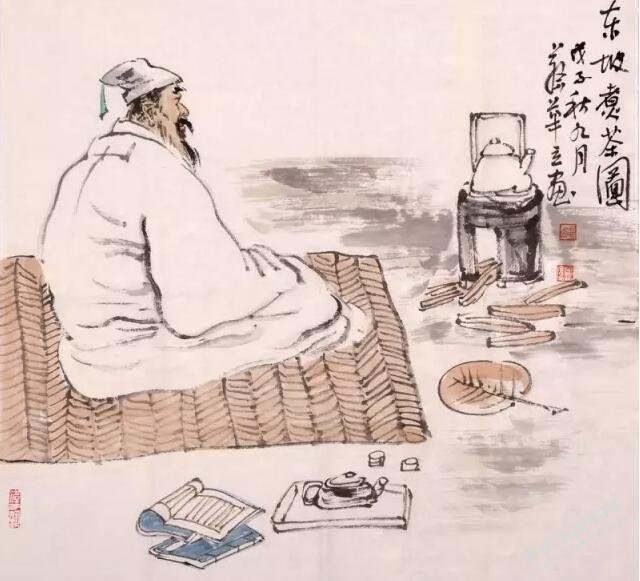 东坡煮茶图
戊子秋九月
蔡华立画